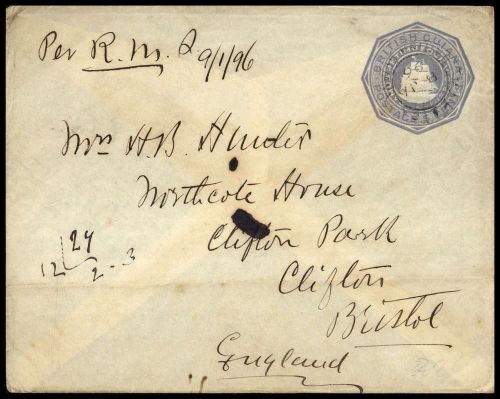 Per R.M.S. 9/1/96
BRITISH GUIANA
Mrs H.B. Hunter
Northcote House
Clifton Park
Clifton
Bristol
England
24
12
2-3